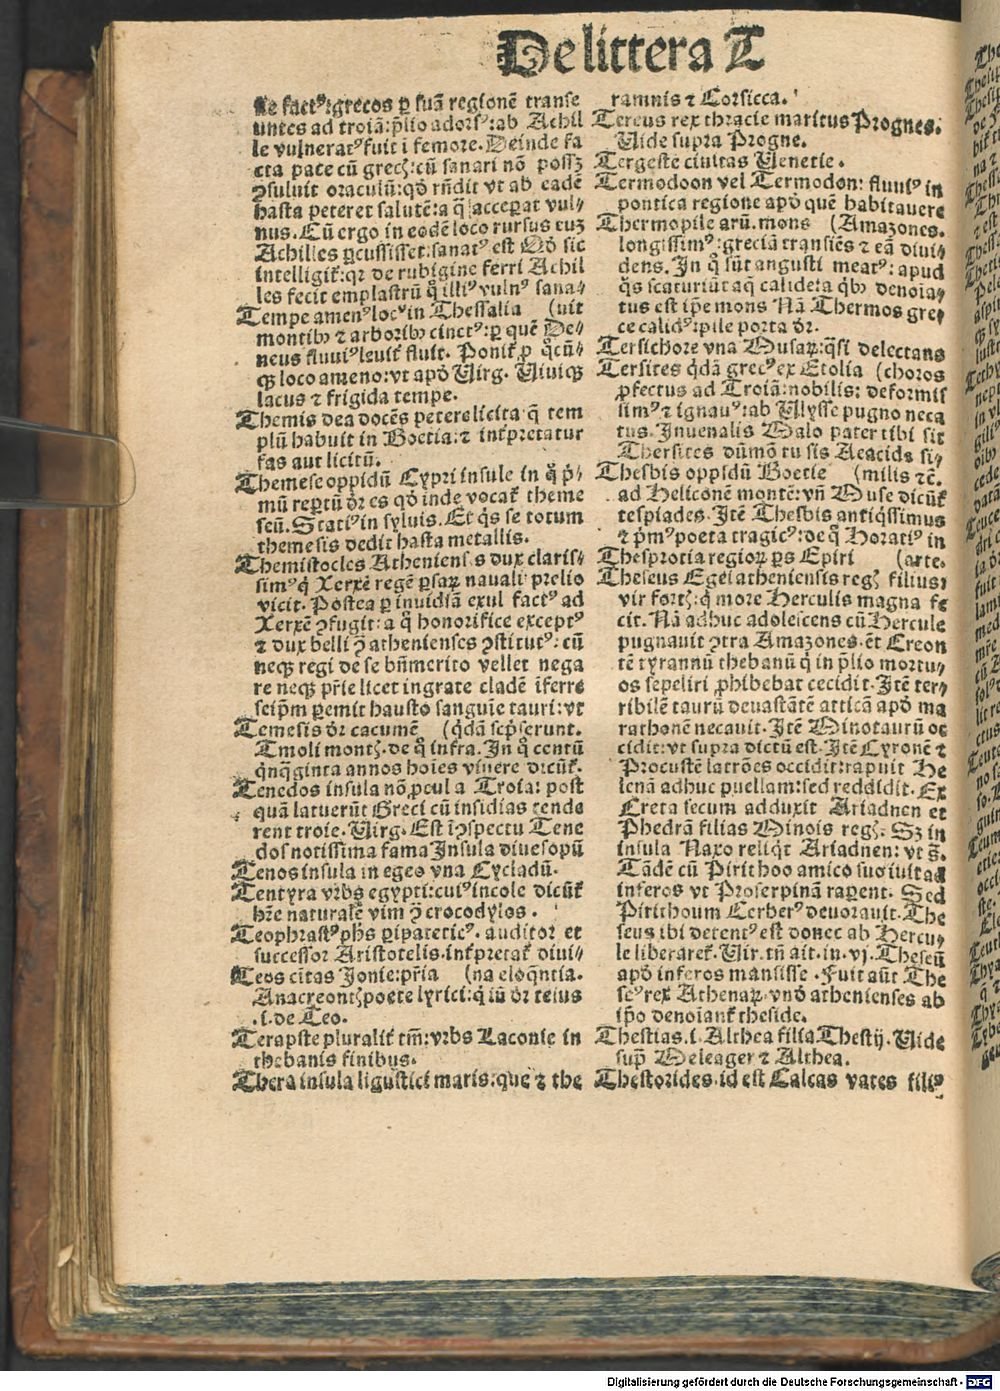 De littera T
se factꝰ: grecos ꝑ suã regionẽ transe
untes ad troiã: p̃lio adorsꝰ: ab Achil
le vulneratꝰ fuit i femore. Deinde fa
cta pace cũ grecꝭ: cũ sanari nõ possꝫ
ꝯsuluit oraculũ: qđ rñdit vt ab eadẽ
hasta peteret salutẽ: a q̃ acceꝑat vul⸗
nus. Cũ ergo in eodẽ loco rursus cuꝫ
Achilles ꝑcussisset: sanatꝰ est Qđ sic
intelligit̃: qꝛ de rubigine ferri Achil
les fecit emplastrũ q̊ illiꝰ vulnꝰ sana⸗
Tempe amenꝰ locꝰ in Thessalia (uit
montibꝰ ⁊ arboribꝰ cinctꝰ: ꝑ quẽ Pe⸗
neus fluuiꝰ leuit̃ fluit. Ponit̃ ꝓ q̊cũ⸗
qꝫ loco ameno: vt apđ Uirg. Uiuiqꝫ
lacus ⁊ frigida tempe.
Themis dea docẽs petere licita q̃ tem
plũ habuit in Boetia: ⁊ inf̃pretatur
fas aut licitũ.
Themese oppidũ Cypri insule in q̊ p̃⸗
mũ reꝑtũ đr es qđ inde vocat̃ theme
seũ. Statiꝰ in syluis. Et q̃s se totum
themesis dedit hasta metallis.
Themistocles Atheniensis dux claris⸗
simꝰ q̃ Xerxẽ regẽ ꝑsaꝝ nauali prelio
vicit. Postea ꝑ inuidiã exul factꝰ ad
Xerxẽ ꝯfugit: a q̊ honorifice exceptꝰ
⁊ dux belli ꝯ̃ athenienses ꝯstitutꝰ: cũ
neqꝫ regi de se bñmerito vellet nega
re neqꝫ pr̃ie licet ingrate cladẽ ĩferre
seip̃m ꝑemit hausto sanguie tauri: vt
Temesis đr cacumẽ (q̃dã scp̃serunt.
Tmoli montꝭ. de q̊ infra. In q̊ centũ
q̃nq̃ginta annos hoĩes viuere dicũt̃.
Tenedos insula nõ ꝓcul a Troia: post
quã latuerũt Greci cũ insidias tende
rent troie. Uirg. Est ĩ ꝯspectu Tene
dos notissima fama Insula diues opũ
Tenos insula in egeo vna Cycladũ.
Tentyra vrbs egypti: cuiꝰ incole dicũt̃
hr̃e naturalẽ vim ꝯ̃ crocodylos.
Teophrastꝰ ph̃s ꝑipateticꝰ. auditor et
successor Aristotelis. inf̃pretat̃ diui⸗
Teos cĩtas Jonie: pr̃ia (na eloq̃ntia.
Anacreontꝭ poete lyrici: q̃ iũ đr teius
.i. de Teo.
Terapste pluralit̃ tm̃: vrbs Laconie in
thebanis finibus.
Thera insula ligustici maris: que ⁊ the
ramnis ⁊ Corsicca.
Tereus rex thracie maritus Prognes.
Uide supra Progne.
Tergeste ciuitas Uenetie.
Termodoon vel Termodon: fluuiꝰ in
pontica regione apđ quẽ habitauere
Thermopile arũ. mons (Amazones.
longissimꝰ: greciã transiẽs ⁊ eã diui⸗
dens. In q̊ sũt angusti meatꝰ: apud
q̊s scaturiũt aq̃ calide: a q̃bꝰ denoia⸗
tus est ip̃e mons Nã Thermos gre⸗
ce calidꝰ: pile porta đr.
Tersichore vna Musaꝝ: q̃si delectans
Tersites q̃dã grecꝰ ex Etolia (choros
ꝓfectus ad Troiã: nobilis: deformis
simꝰ ⁊ ignauꝰ: ab Ulysse pugno neca
tus. Inuenalis Malo pater tibi sit
Thersites dũmõ tu sis Aeacidꝭ si⸗
Thesbis oppidũ Boetie (milis ⁊c̃.
ad Heliconẽ montẽ: vñ Muse dicũt̃
tespiades. Itẽ Thesbis antiq̃ssimus
⁊ p̃mꝰ poeta tragicꝰ: de q̊ Horatiꝰ in
Thesprotia regioꝝ ꝑs Epiri (arte.
Theseus Egei atheniensis regꝭ filius:
vir fortꝭ: q̃ more Herculis magna fe
cit. Nã adhuc adolescens cũ Hercule
pugnauit ꝯtra Amazones. ẽt Creon
tẽ tyrannũ thebanũ q̃ in p̃lio mortu⸗
os sepeliri ꝓhibebat cecidit. Itẽ ter⸗
ribilẽ taurũ deuastãtẽ atticã apđ ma
rathonẽ necauit. Itẽ Minotaurũ oc
cidit: vt supra dictũ est. Itẽ Cyronẽ ⁊
Procustẽ latrões occidit: rapuit He
lenã adhuc puellam: sed reddidit. Ex
Creta secum adduxit Ariadnen et
Phedrã filias Minois regꝭ: Sꝫ in
insula Naxo reliq̃t Ariadnen: vt s̃.
Tãdẽ cũ Pirithoo amico suo iuit ad
inferos vt Proserpinã raꝑent. Sed
Pirithoum Cerberꝰ deuorauit. The
seus ibi detentꝰ est donec ab Hercu⸗
le liberaret̃. Uir. tñ ait. in. vj. Theseũ
apđ inferos mansisse. Fuit aũt The
seꝰ rex Athenaꝝ. vnđ athenienses ab
ip̃o denoiant̃ theside.
Thestias. i. Althea filia Thestij. Uide
sup̃ Meleager ⁊ Althea.
Thestorides. id est Calcas vates filiꝰ
Digitalisierung gefördert durch die Deutsche Forschungsgemeinschaft - DFG